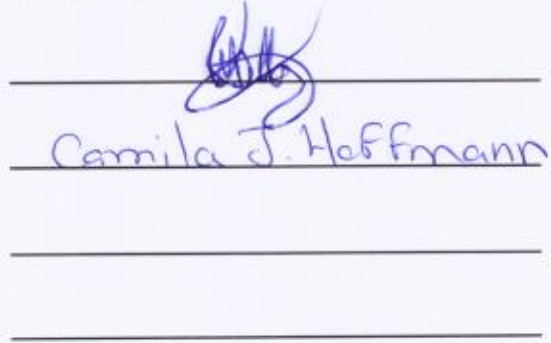 Camila J. Hoffmann